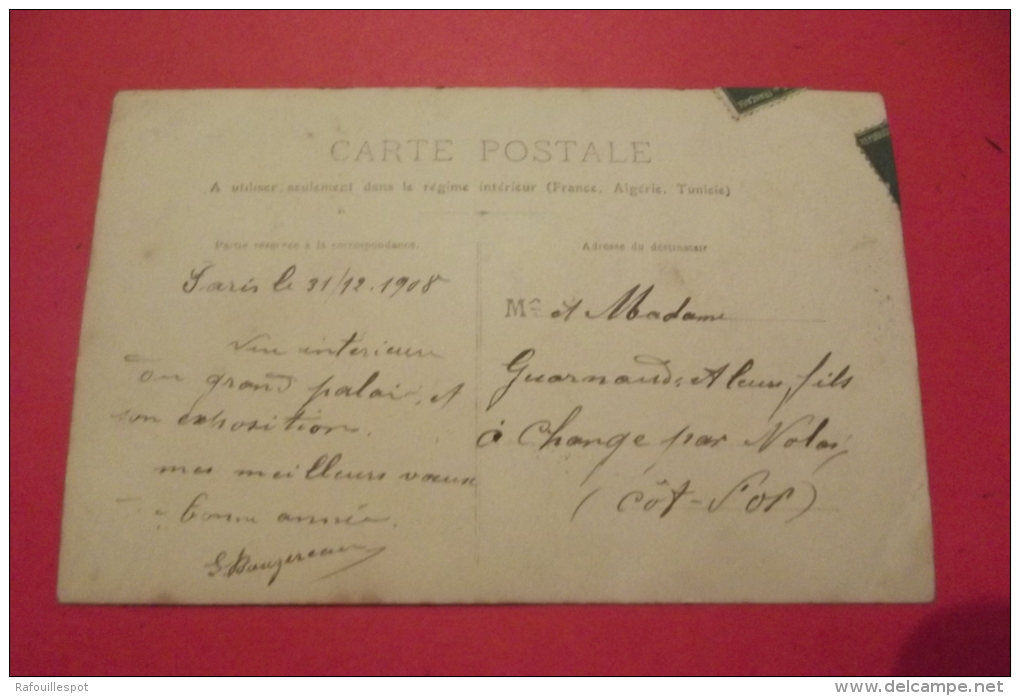 CARTE POSTALE
A utiliser seulement dans le régime intérieur (France, Algérie, Tunisie)
Partie réservée à la correspondance.
Paris le 31/12.1908
Vue interieure
du grand palais, et
son exposition.
mes meilleurs vœux
bonne année.
Adresse du destinataire
M et Madame
et leurs fils
à Change par Nolay
(Côt-d'or)
Rafouillespot
www.delcampe.net